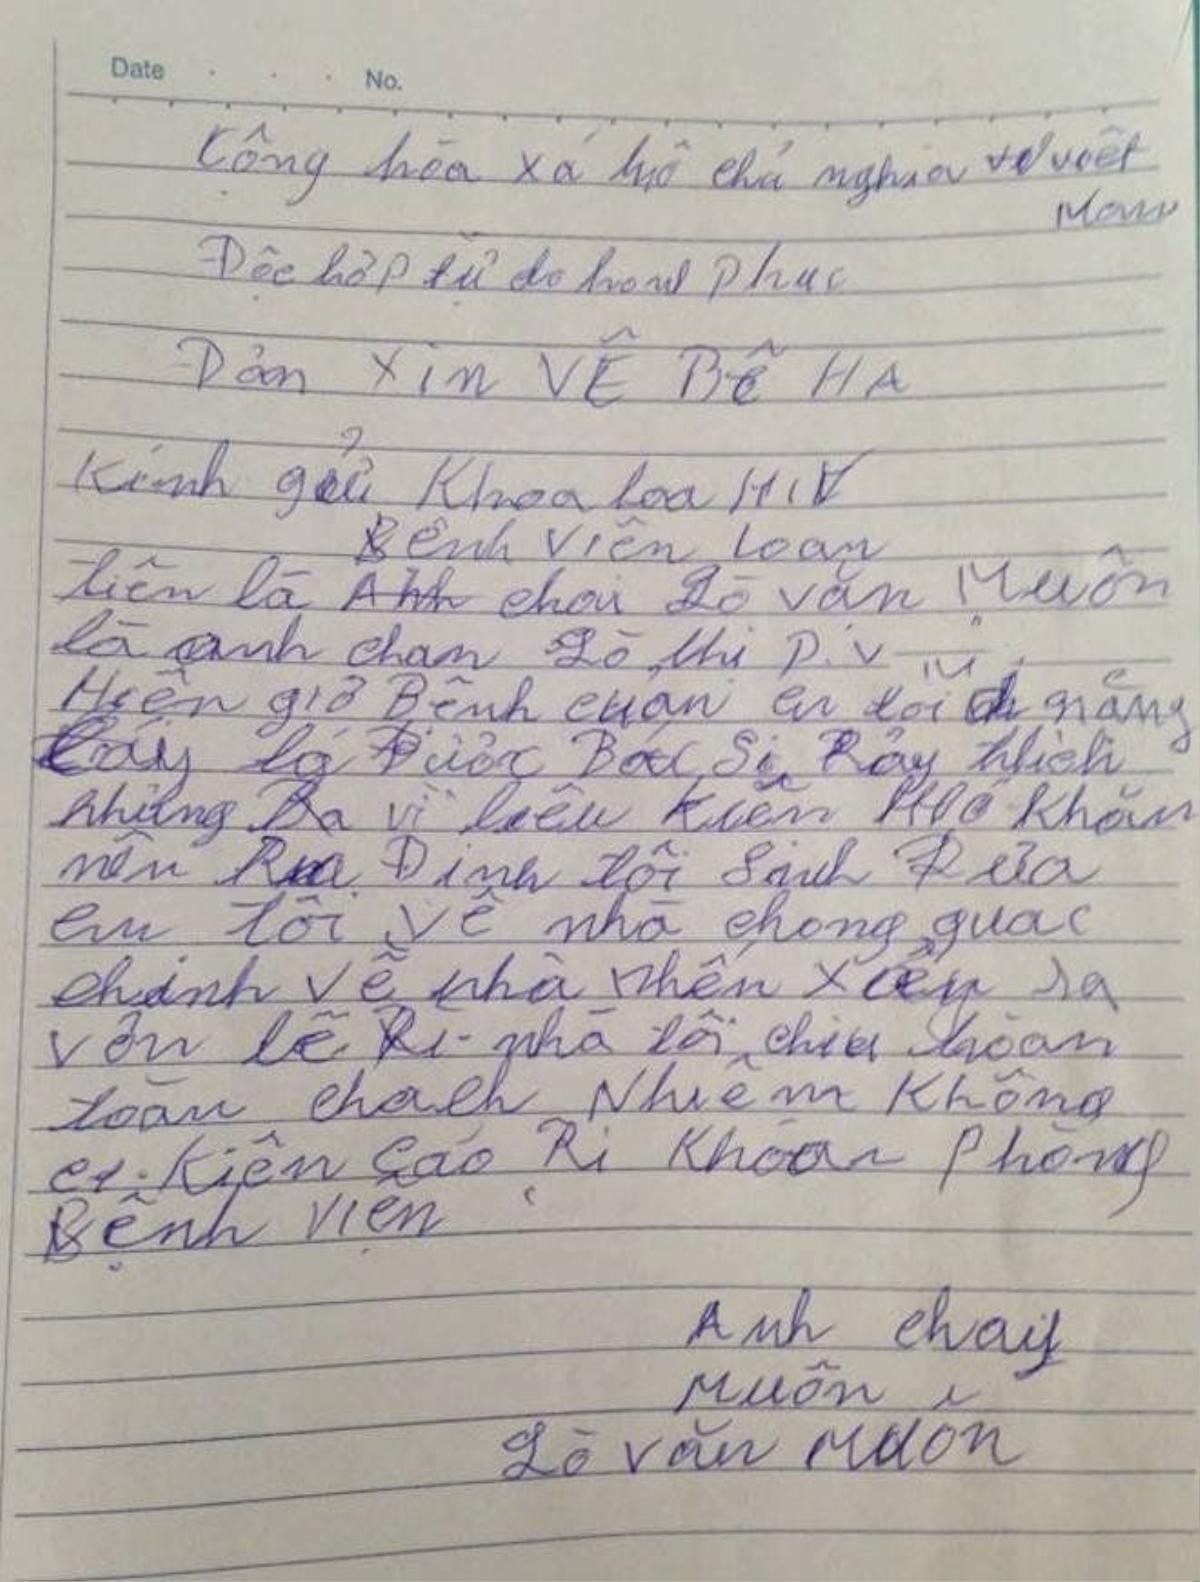 Date . . . No.
Công hòa xá hộ chủ nghĩa việt
Mam
Độc hởp tử do hond phuc
Dản Xin VẼ BỄ HA
Kính gửi Khoa loa HIV
Bênh Viên Loan
tiên là Anh chai Lò văn Muôn
là anh chan Lò thi P. V
Hiên giờ Bênh cuản em tôi năng
láy là Được Bác Sị Rảy thich
nhưng Ra vì liêu kiên Khăn
nên Rua Đinh tôi Sinh Rưa
em tôi về nhà chong quac
chinh về nhà nhên xảy ra
vôn lẽ Rì nhà tôi chiu hoan
toàn chach Nhiêm Không
cs. Kiên Cáo Ri Khoan phòng
Bệnh viện
Anh chay
Muôn
Lò văn Muôn